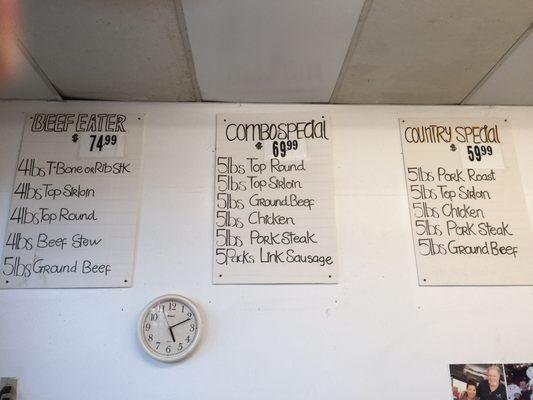 BEEF EATER
$ 74.99
4lbs T-Bone or Rib Stk
4lbs Top Sirloin
4lbs Top Round
4lbs Beef Stew
5lbs Ground Beef
COMBO SPECIAL
$ 69.99
5lbs Top Round
5lbs Top Sirloin
5lbs Ground Beef
5lbs Chicken
5lbs Pork Steak
5Packs Link Sausage
COUNTRY SPECIAL
$ 59.99
5lbs Pork Roast
5lbs Top Sirloin
5lbs Chicken
5lbs Pork Steak
5lbs Ground Beef
12
11 1
10 2
9 3
8 4
7 5
6